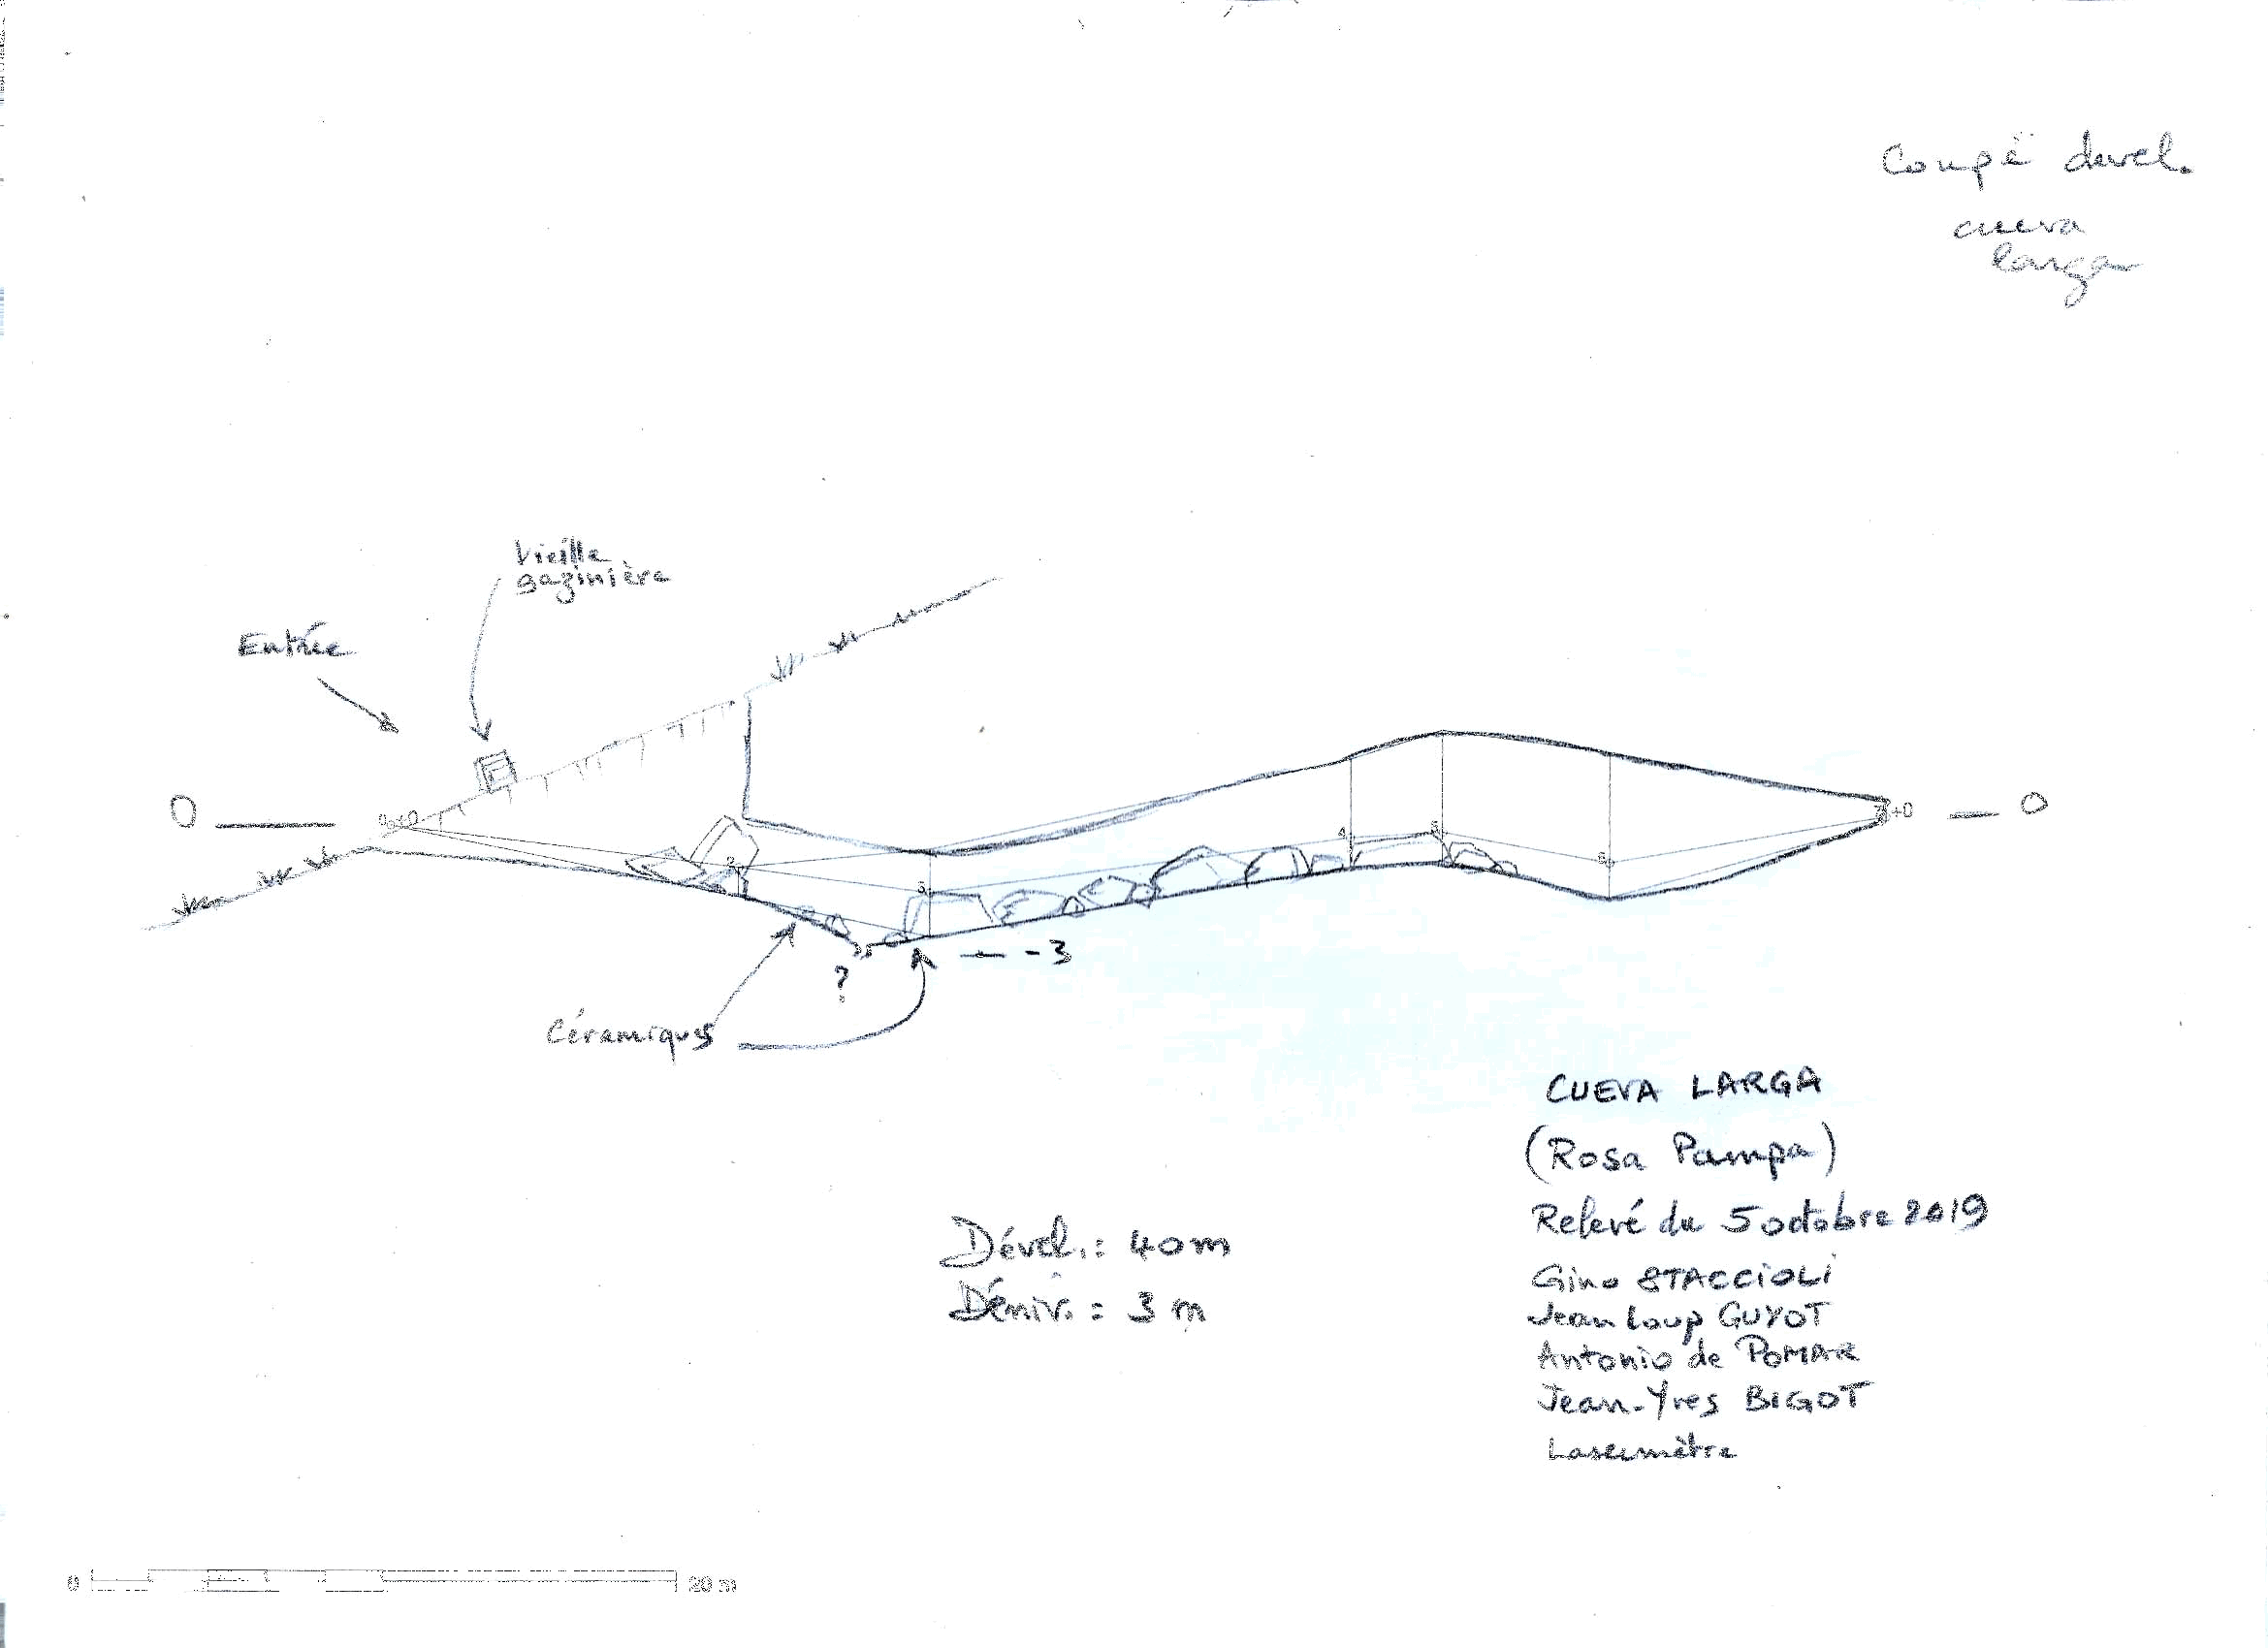 Coupé devel.
cueva
larga
Vieille
gazinière
Entrée
0
+0
2
3
4
5
6
7
+0
0
-3
?
Céramiques
CUEVA LARGA
(Rosa Pampa)
Relevé du 5 octobre 2019
Dével. : 40m
Déniv. : 3 m
Gino STACCIOLI
Jean Loup GUYOT
Antonio de POMAR
Jean-Yves BIGOT
Lasermètre
0
20 m